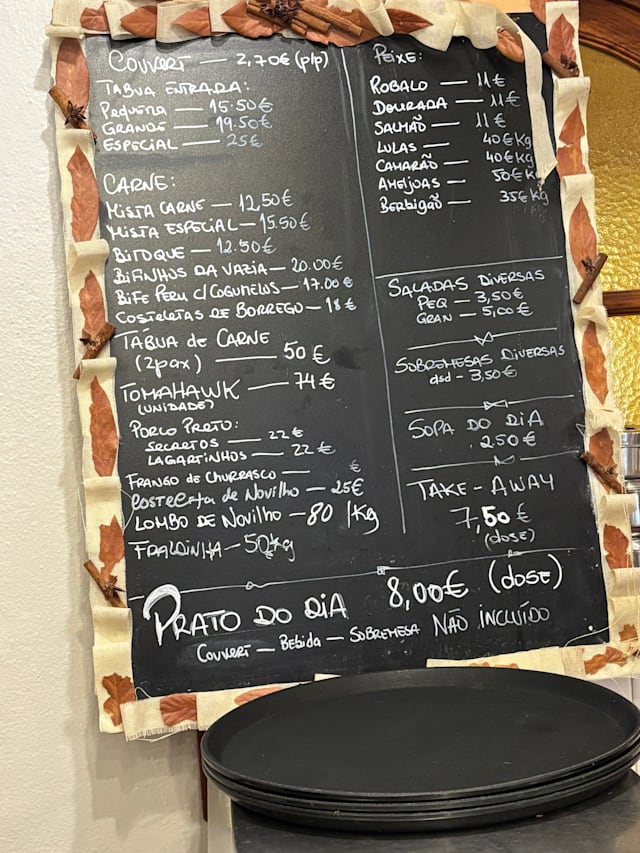 COUVERT — 2,70€ (p/p)
TÁBUA ENTRADA:
PEQUENA — 15.50€
GRANDE — 19.50€
ESPECIAL — 25€
CARNE:
MISTA CARNE — 12,50€
MISTA ESPECIAL — 15.50€
BITOQUE — 12.50€
BIFINHOS DA VAZIA — 20.00€
BIFE PERU C/COGUMELOS — 17.00€
COSTELETAS DE BORREGO — 18€
TÁBUA de CARNE
(2pax) — 50€
TOMAHAWK — 74€
(UNIDADE)
PORCO PRETO:
SECRETOS — 22€
LAGARTINHOS — 22€
FRANGO de CHURRASCO — €
Costeleta de Novilho — 25€
LOMBO DE NOVILHO — 80 /Kg
FRALDINHA — 50€Kg
PEIXE:
ROBALO — 11€
DOURADA — 11€
SALMÃO — 11€
LULAS — 40€Kg
CAMARÃO — 40€Kg
AMEIJOAS — 50€Kg
BERBIGÃO — 35€Kg
SALADAS DIVERSAS
PEQ — 3,50€
GRAN — 5,00€
SOBREMESAS DIVERSAS
dsd - 3,50€
SOPA DO DIA
2.50€
TAKE-AWAY
7,50€
(DOSE)
PRATO DO DIA 8,00€ (DOSE)
COUVERT — BEBIDA — SOBREMESA NÃO INCLUÍDO